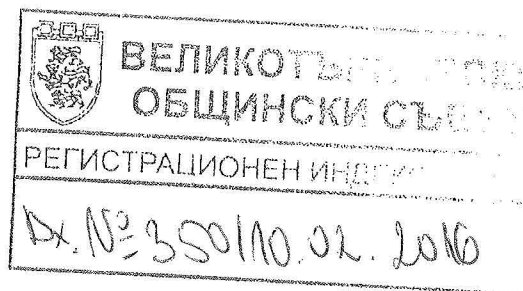 ВЕЛИКОТЪ
ОБЩИНСКИ СЪ
РЕГИСТРАЦИОНЕН ИНДЕК
Вх. № 350/10.02.2016